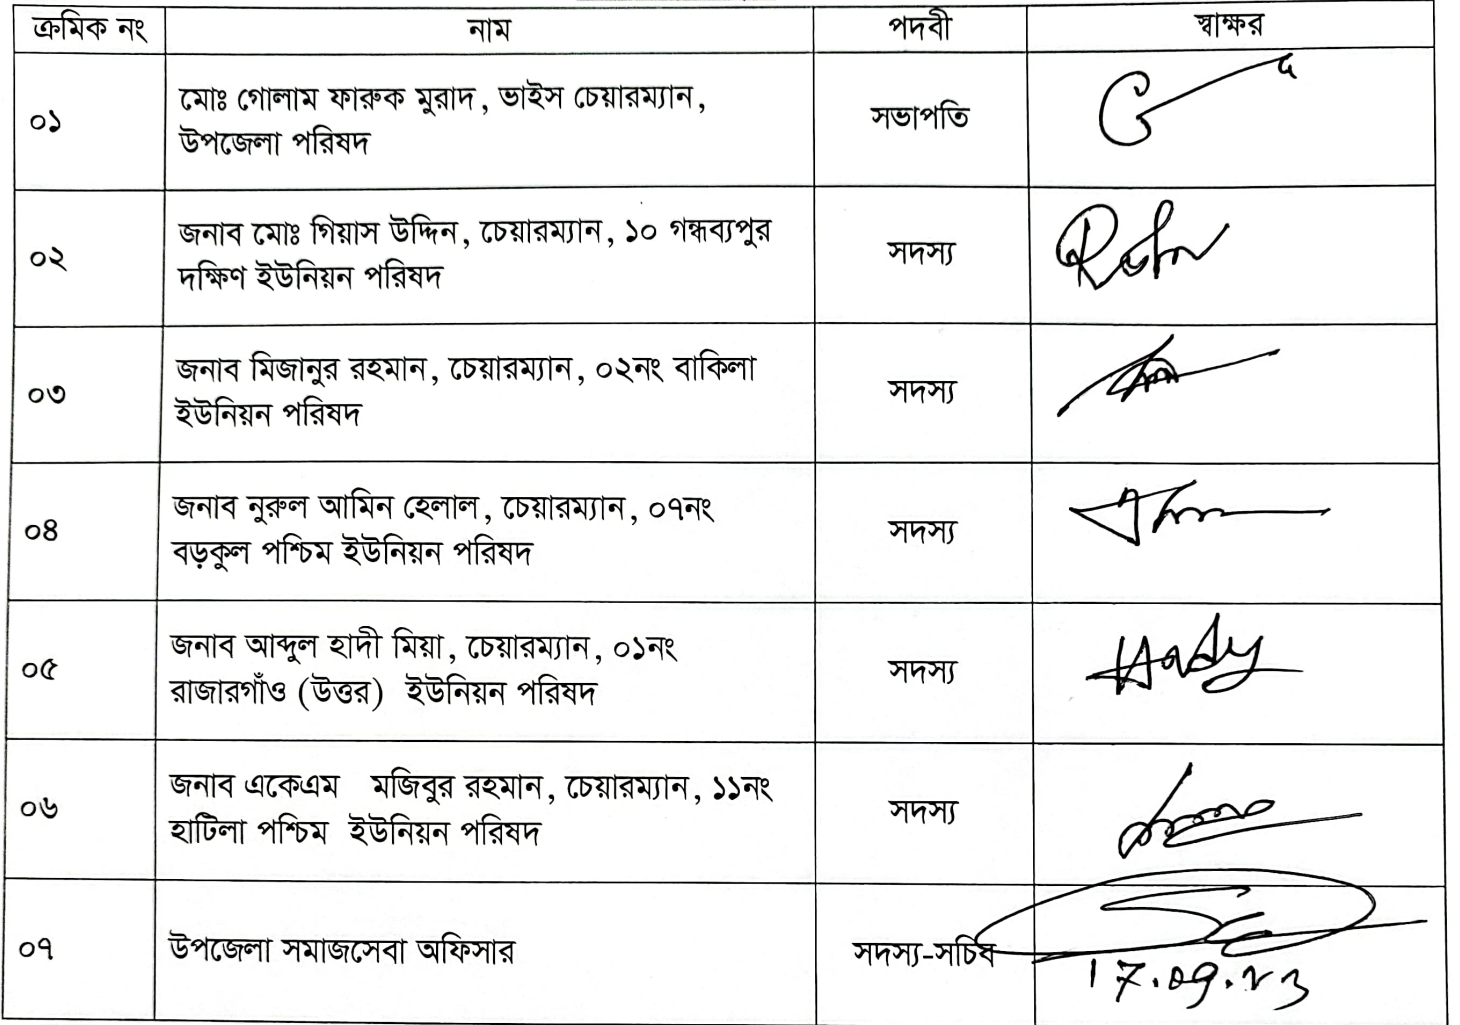 ক্রমিক নং নাম পদবী স্বাক্ষর
০১ মোঃ গোলাম ফারুক মুরাদ, ভাইস চেয়ারম্যান, সভাপতি
উপজেলা পরিষদ
০২ জনাব মোঃ গিয়াস উদ্দিন, চেয়ারম্যান, ১০ গন্ধব্যপুর সদস্য
দক্ষিণ ইউনিয়ন পরিষদ
০৩ জনাব মিজানুর রহমান, চেয়ারম্যান, ০২নং বাকিলা সদস্য
ইউনিয়ন পরিষদ
০৪ জনাব নুরুল আমিন হেলাল, চেয়ারম্যান, ০৭নং সদস্য
বড়কুল পশ্চিম ইউনিয়ন পরিষদ
০৫ জনাব আব্দুল হাদী মিয়া, চেয়ারম্যান, ০১নং সদস্য Hady
রাজারগাঁও (উত্তর) ইউনিয়ন পরিষদ
০৬ জনাব একেএম মজিবুর রহমান, চেয়ারম্যান, ১১নং সদস্য
হাটিলা পশ্চিম ইউনিয়ন পরিষদ
০৭ উপজেলা সমাজসেবা অফিসার সদস্য-সচিব
17.09.23